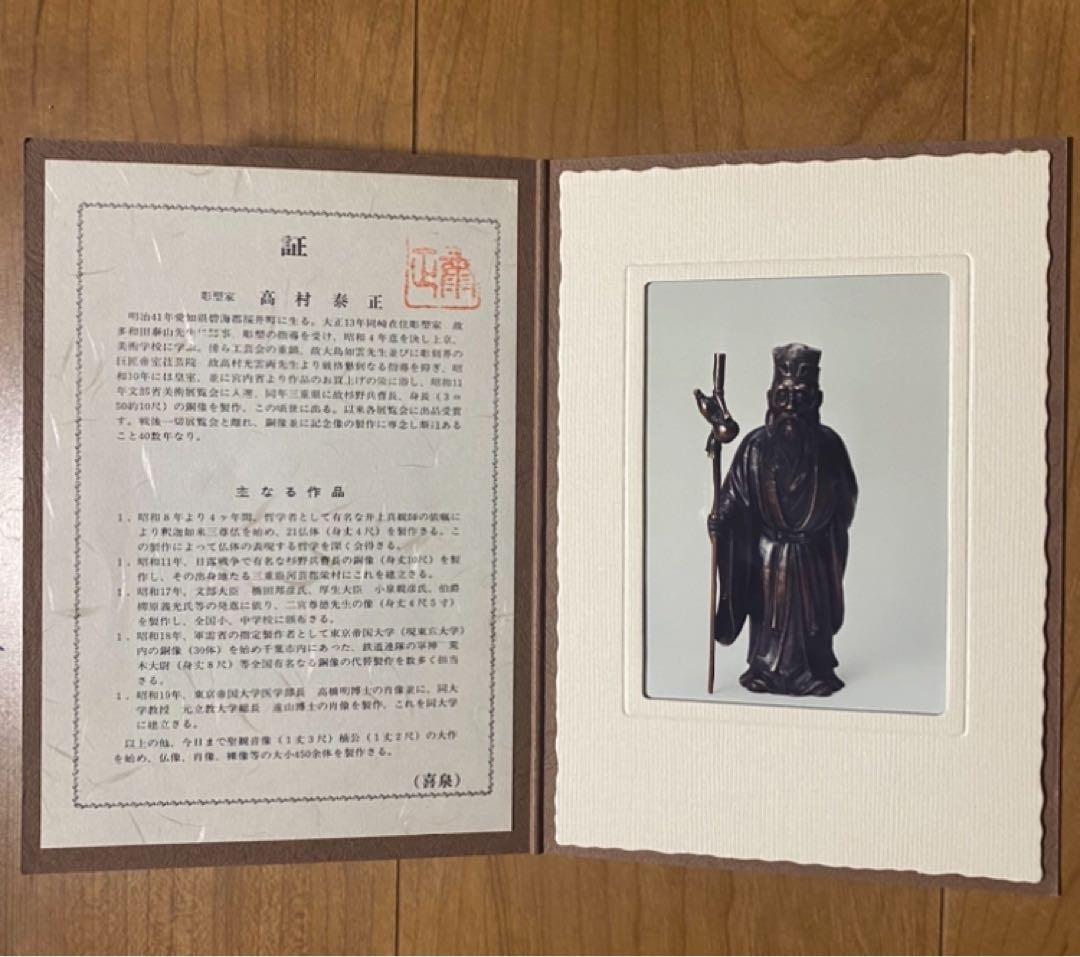 証
彫塑家 高村泰正
泰正
明治41年愛知県碧海郡桜井町に生る。大正13年岡崎在住彫塑家 故
多和田泰山先生に師事、彫塑の指導を受け、昭和4年意を決し上京、
美術学校に学ぶ。傍ら工芸会の重鎮、故大島如雲先生並びに彫刻界の
巨匠帝室技芸院 故高村光雲両先生より厳格懇切なる指導を仰ぎ、昭
和10年には皇室、並に宮内省より作品のお買上げの栄に浴し、昭和11
年文部省美術展覧会に入選、同年三重県に故杉野兵曹長、身長(3m
50約10尺)の銅像を製作、この頃世に出る。以来各展覧会に出品受賞
す。戦後一切展覧会と離れ、銅像並に記念像の製作に専念し斯道ある
こと40数年なり。
主なる作品
1.昭和8年より4ヶ年間、哲学者として有名な井上真観師の依嘱に
より釈迦如来三尊仏を始め、21仏体(身丈4尺)を製作さる。こ
の製作によって仏体の表現する哲学を深く会得さる。
1.昭和11年、日露戦争で有名な杉野兵曹長の銅像(身丈10尺)を製
作し、その出身地たる三重県河芸郡栄村にこれを建立さる。
1.昭和17年、文部大臣 橋田邦彦氏、厚生大臣 小泉親彦氏、伯爵
柳原義光氏等の発意に依り、二宮尊徳先生の像(身丈4尺5寸)
を製作し、全国小、中学校に頒布さる。
1.昭和18年、軍需省の指定製作者として東京帝国大学(現東京大学)
内の銅像(30体)を始め千葉市内にあった、鉄道連隊の軍神 荒
木大尉(身丈8尺)等全国有名なる銅像の代替製作を数多く担当
さる。
1.昭和19年、東京帝国大学医学部長 高橋明博士の肖像並に、同大
学教授 元立教大学総長 遠山博士の肖像を製作、これを同大学
に建立さる。
以上の他、今日まで聖観音像(1丈3尺)楠公(1丈2尺)の大作
を始め、仏像、肖像、裸像等の大小450余体を製作さる。
(喜泉)